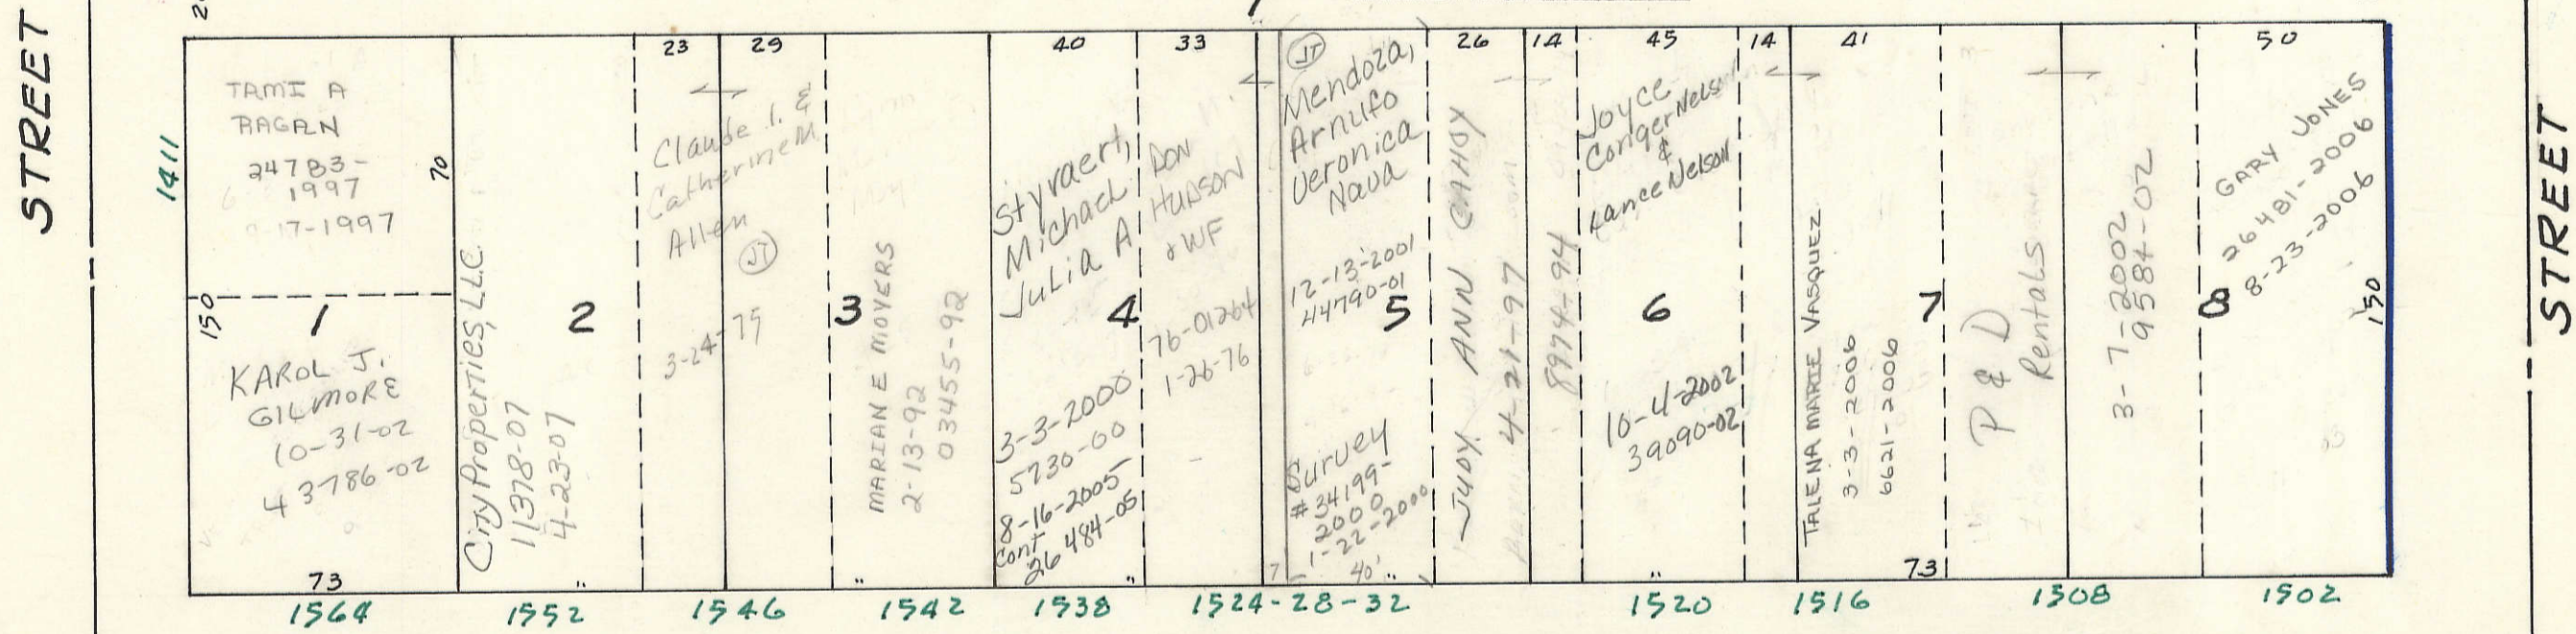 STREET
1411
TAMI A
RAGAN
24783-
1997
17-1997
70
150
1
KAROL J.
GILMORE
10-31-02
43786-02
73
1564
City Properties, LLC
11378-07
4-23-07
2
"
1552
23
29
Claude I. &
Catherine M
Allen
JT
3-24-75
1546
MARIAN E MOYERS
2-13-92
03455-92
3
"
1542
40
Styvaert,
Michael
Julia A
4
3-3-2000
5730-00
8-16-2005
Cont
26484-05
"
1538
33
DON
HUDSON
& WF
76-01264
1-26-76
7
JT
Mendoza,
Arnulfo
Veronica
Nava
12-13-2001
44790-01
5
Survey
#34199-
2000
1-22-2000
40'
"
1524-28-32
26
14
JUDY ANN CAHOY
4-21-97
8974-94
45
14
Joyce
Conger Nelson
&
Lance Nelson
6
10-4-2002
39090-02
"
1520
41
TALENA MARIE VASQUEZ
3-3-2006
6621-2006
7
73
1516
P & D
Rentals
3-7-2002
9584-02
1508
50
GARY JONES
26481-2006
8-23-2006
8
150
1502
STREET